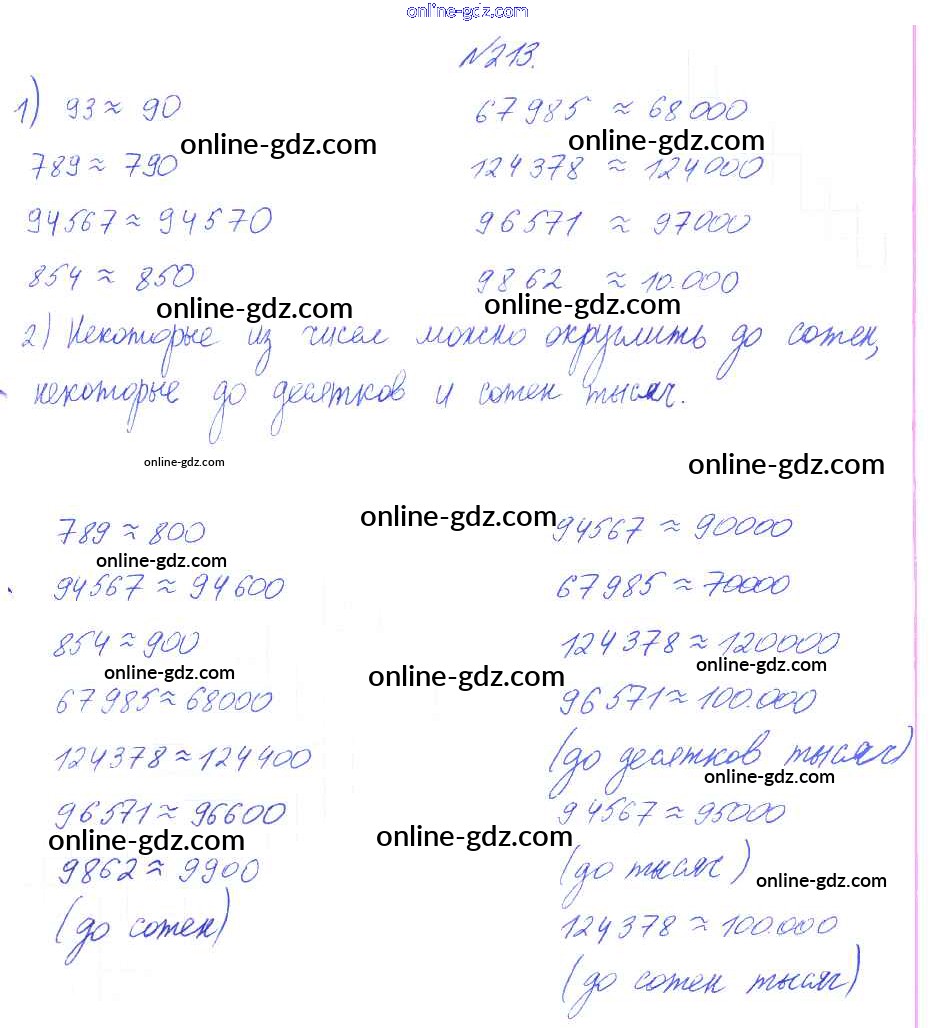 online-gdz.com
№213.
1) 93 ≈ 90
789 ≈ 790
94567 ≈ 94570
854 ≈ 850
67985 ≈ 68000
124378 ≈ 124000
96571 ≈ 97000
9862 ≈ 10.000
online-gdz.com
online-gdz.com
online-gdz.com
online-gdz.com
2) Некоторые из чисел можно округлить до сотен,
некоторые до десятков и сотен тысяч.
online-gdz.com
online-gdz.com
789 ≈ 800
online-gdz.com
94567 ≈ 94600
854 ≈ 900
online-gdz.com
67985 ≈ 68000
124378 ≈ 124400
96571 ≈ 96600
online-gdz.com
9862 ≈ 9900
(до сотен)
online-gdz.com
online-gdz.com
online-gdz.com
94567 ≈ 90000
67985 ≈ 70000
124378 ≈ 120000
online-gdz.com
96571 ≈ 100.000
(до десятков тысяч)
online-gdz.com
94567 ≈ 95000
(до тысяч)
online-gdz.com
124378 ≈ 100.000
(до сотен тысяч)